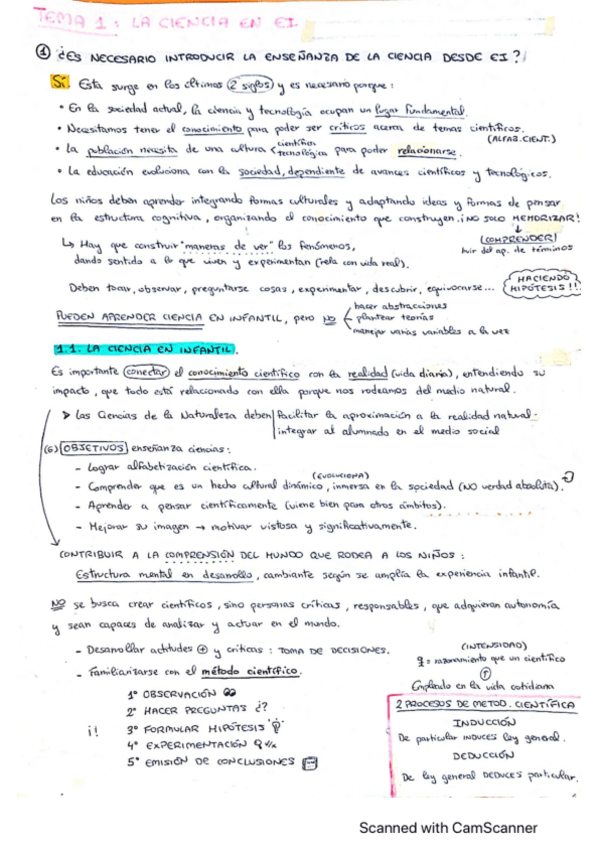 TEMA 1: LA CIENCIA EN EI.
① ¿ES NECESARIO INTRODUCIR LA ENSEÑANZA DE LA CIENCIA DESDE EI?
Sí. Esta surge en los últimos 2 siglos y es necesario porque:
• En la sociedad actual, la ciencia y tecnología ocupan un lugar fundamental.
• Necesitamos tener el conocimiento para poder ser críticos acerca de temas científicos.
(ALFAB.CIENT.)
• La población necesita de una cultura < científica tecnológica para poder relacionarse.
• La educación evoluciona con la sociedad, dependiente de avances científicos y tecnológicos.
Los niños deben aprender integrando formas culturales y adaptando ideas y formas de pensar
en la estructura cognitiva, organizando el conocimiento que construyen. ¡NO SOLO MEMORIZAR!
↓
¡COMPRENDER!
↳ Hay que construir "maneras de ver" los fenómenos,
huir del ap. de términos
dando sentido a lo que viven y experimentan (rela con vida real).
HACIENDO
HIPÓTESIS!!
Deben tocar, observar, preguntarse cosas, experimentar, descubrir, equivocarse...
PUEDEN APRENDER CIENCIA EN INFANTIL, pero NO
hacer abstracciones
plantear teorías
manejar varias variables a la vez
1.1. LA CIENCIA EN INFANTIL.
Es importante conectar el conocimiento científico con la realidad (vida diaria), entendiendo su
impacto, que todo está relacionado con ella porque nos rodeamos del medio natural.
➤ Las Ciencias de la Naturaleza deben facilitar la aproximación a la realidad natural.
integrar al alumnado en el medio social
(G) OBJETIVOS enseñanza ciencias:
- Lograr alfabetización científica.
(EVOLUCIONA)
- Comprender que es un hecho cultural dinámico, inmersa en la sociedad (NO verdad absoluta).
- Aprender a pensar científicamente (viene bien para otros ámbitos).
- Mejorar su imagen → motivar vistosa y significativamente.
CONTRIBUIR A LA COMPRENSIÓN DEL MUNDO QUE RODEA A LOS NIÑOS:
Estructura mental en desarrollo, cambiante según se amplía la experiencia infantil.
NO se busca crear científicos, sino personas críticas, responsables, que adquieran autonomía
y sean capaces de analizar y actuar en el mundo.
- Desarrollar actitudes ⊕ y críticas: TOMA DE DECISIONES.
- Familiarizarse con el método científico.
1º OBSERVACIÓN
2º HACER PREGUNTAS ¿?
¡! 3º FORMULAR HIPÓTESIS
4º EXPERIMENTACIÓN
5º EMISIÓN DE CONCLUSIONES
(INTENSIDAD)
= razonamiento que un científico
↑
Empleado en la vida cotidiana
2 PROCESOS DE METOD. CIENTÍFICA
INDUCCIÓN
De particular INDUCES ley general.
DEDUCCIÓN
De ley general DEDUCES particular.
Scanned with CamScanner